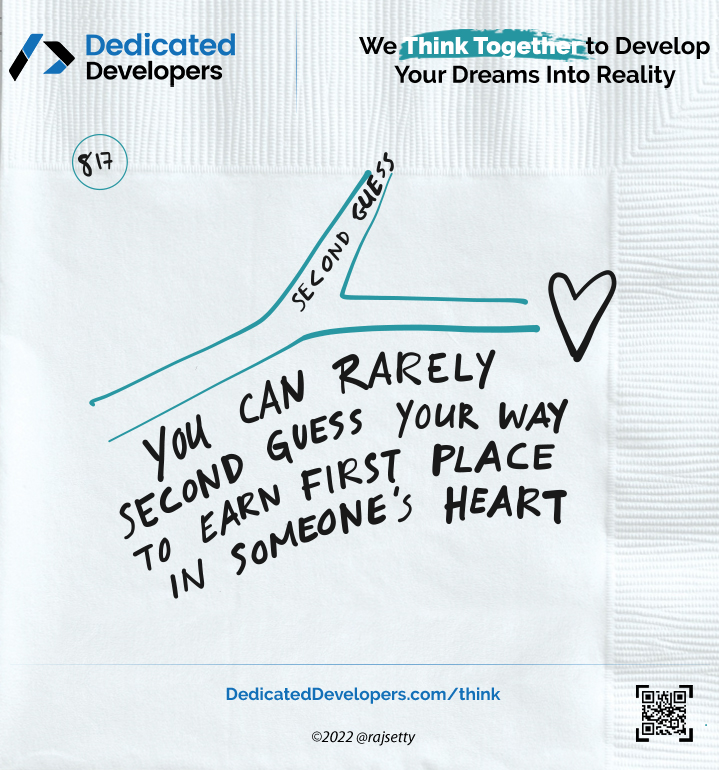 Dedicated
Developers
We Think Together to Develop
Your Dreams Into Reality
817
SECOND GUESS
YOU CAN RARELY
SECOND GUESS YOUR WAY
TO EARN FIRST PLACE
IN SOMEONE'S HEART
DedicatedDevelopers.com/think
©2022 @rajsetty